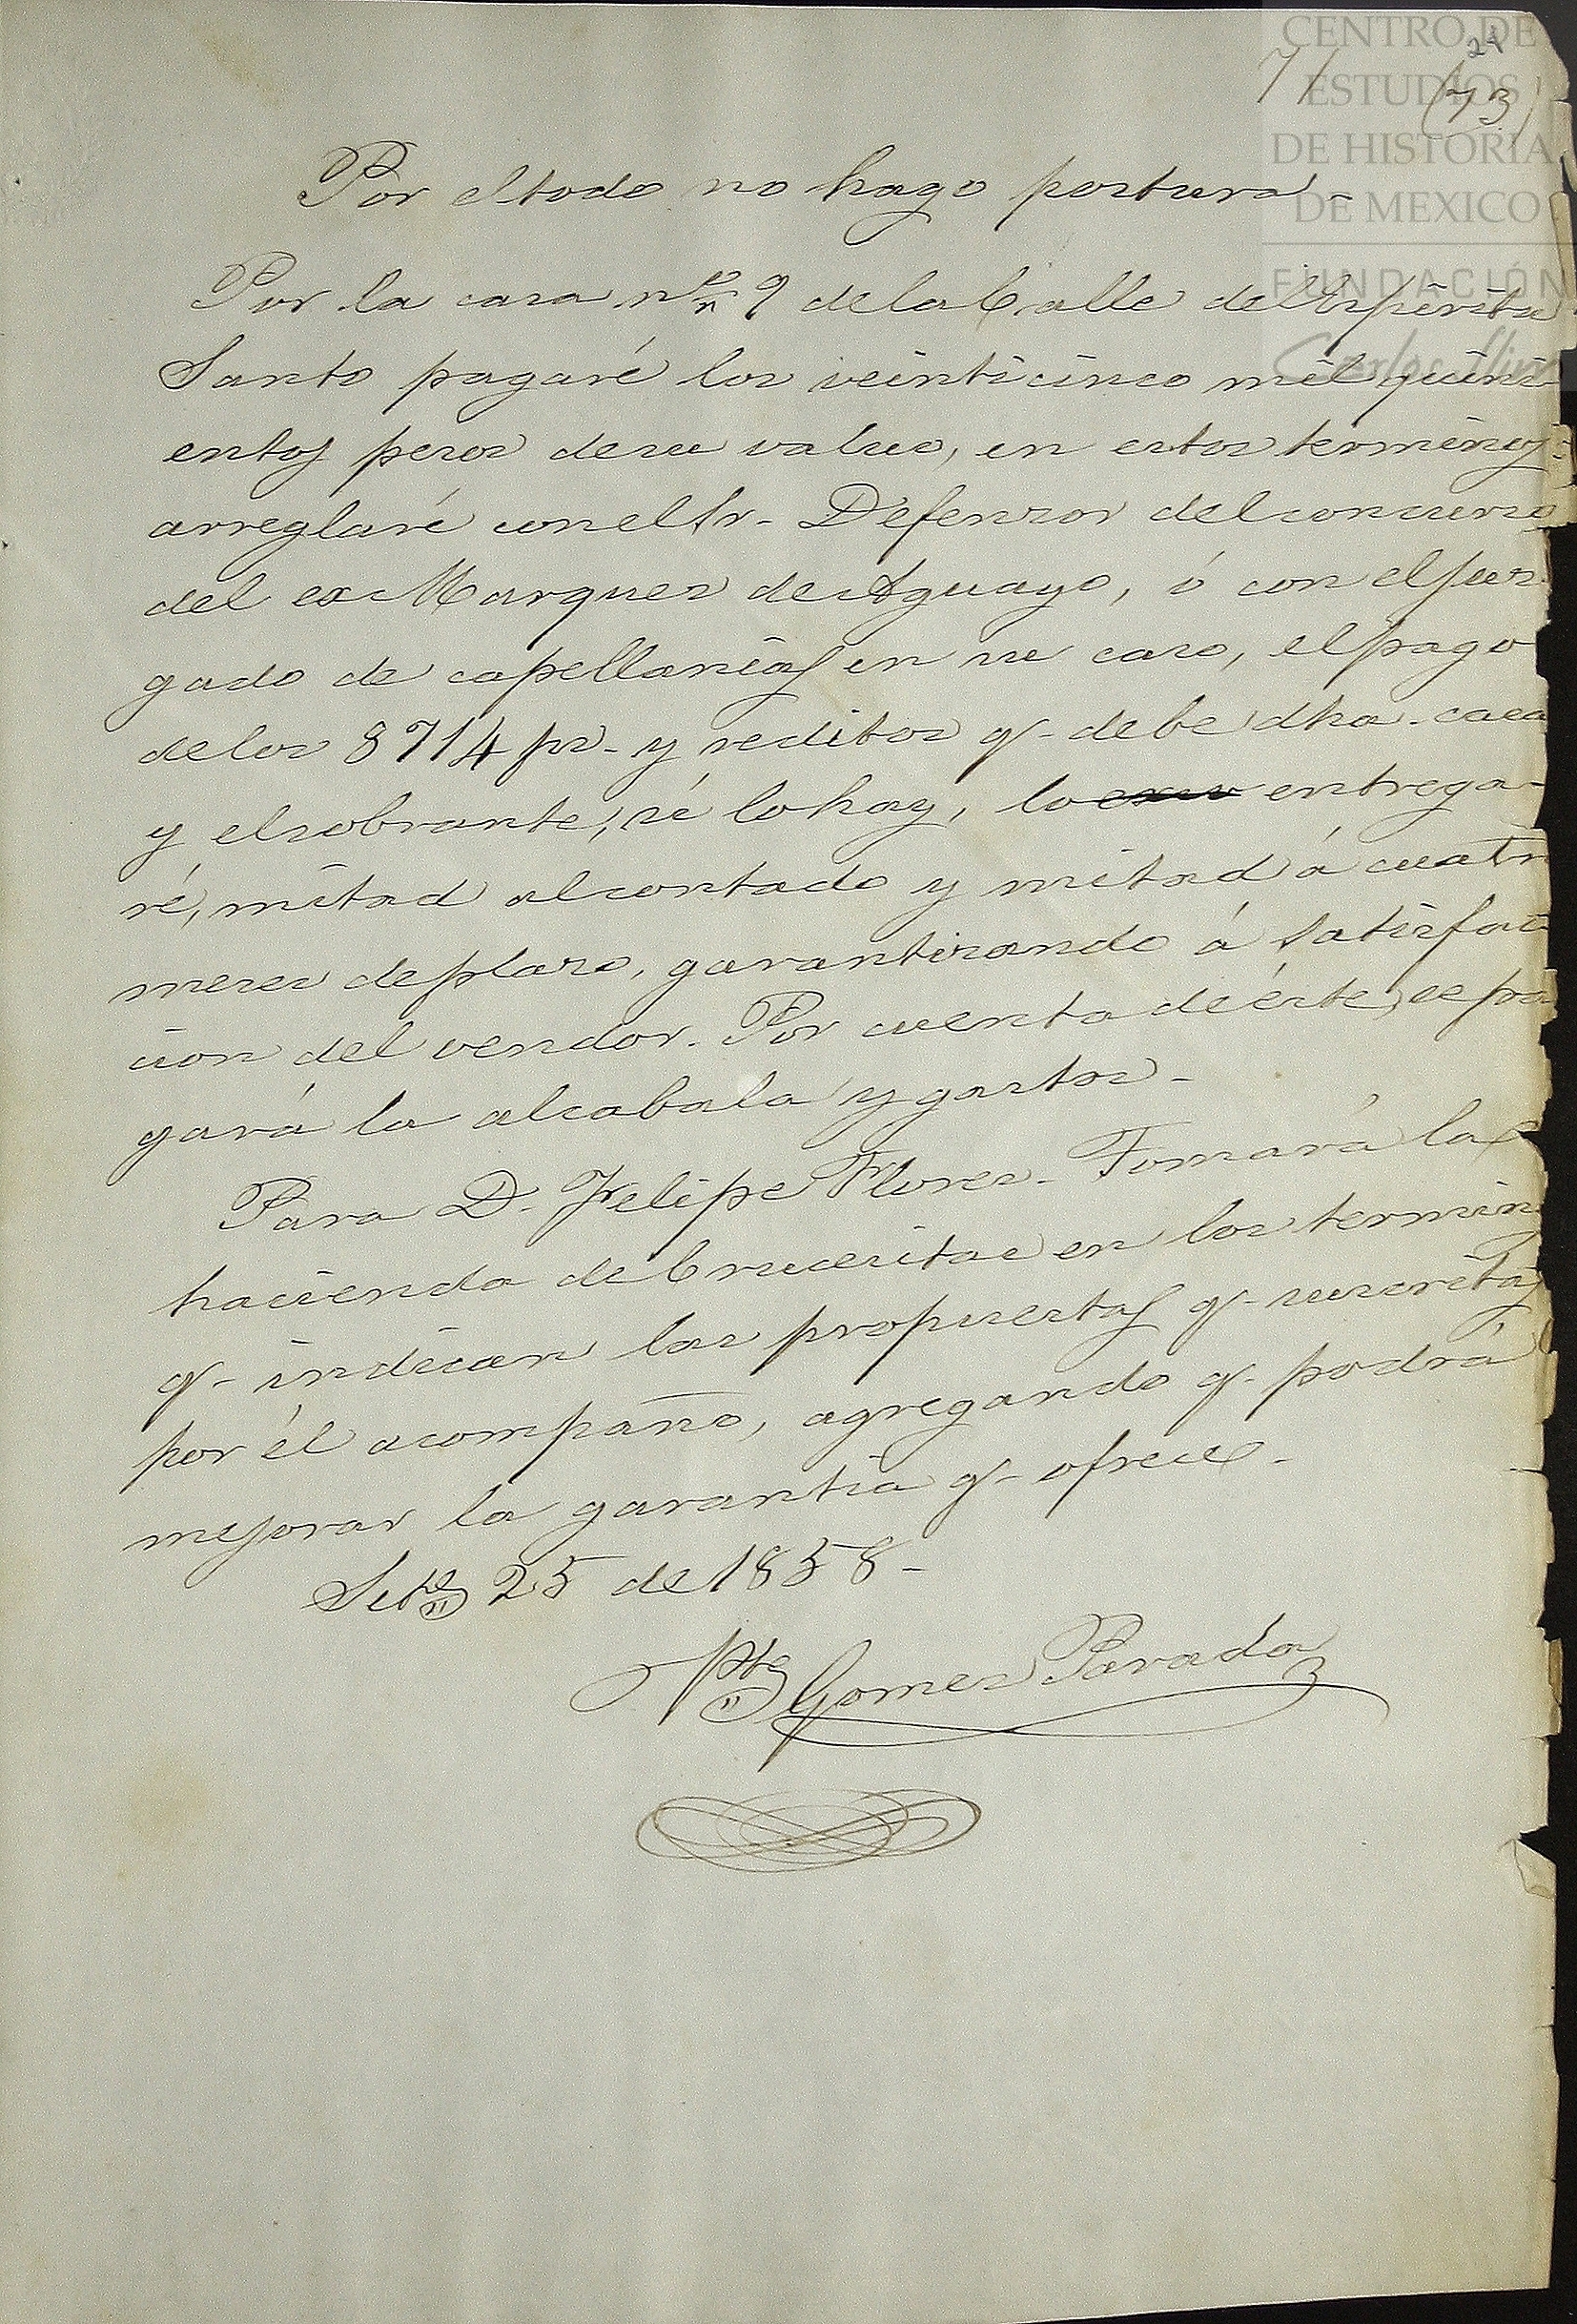 CENTRO DE
ESTUDIOS
DE HISTORIA
DE MEXICO
FUNDACIÓN
Carlos Slim
71 24
(73)
Por el todo no hago postura-
Por la casa nro 9 de la Calle del Espiritu
Santo pagaré los veinticinco mil quini-
entos pesos de su valuo, en estos terminos:
arreglaré con el Sr. Defensor del concurso
del ex Marques de Aguayo, ó con el juz-
gado de capellanias en su caso, el pago
de los 8714 ps. y reditos q. debe dha. casa
y el sobrante, si lo hay, lo entrega-
ré, mitad al contado y mitad á cuatro
meses de plazo, garantizando á satisfac-
cion del vendor. Por cuenta de éste, se pa-
gará la alcabala y gastos.
Para D. Felipe Flores. Tomará la
hacienda de Crucesitas en los termin
q. indican las propuestas q. suscritas
por él acompaño, agregando q. podrá
mejorar la garantia q. ofrece.
Setbe 25 de 1858-
Pte Gomez Parada